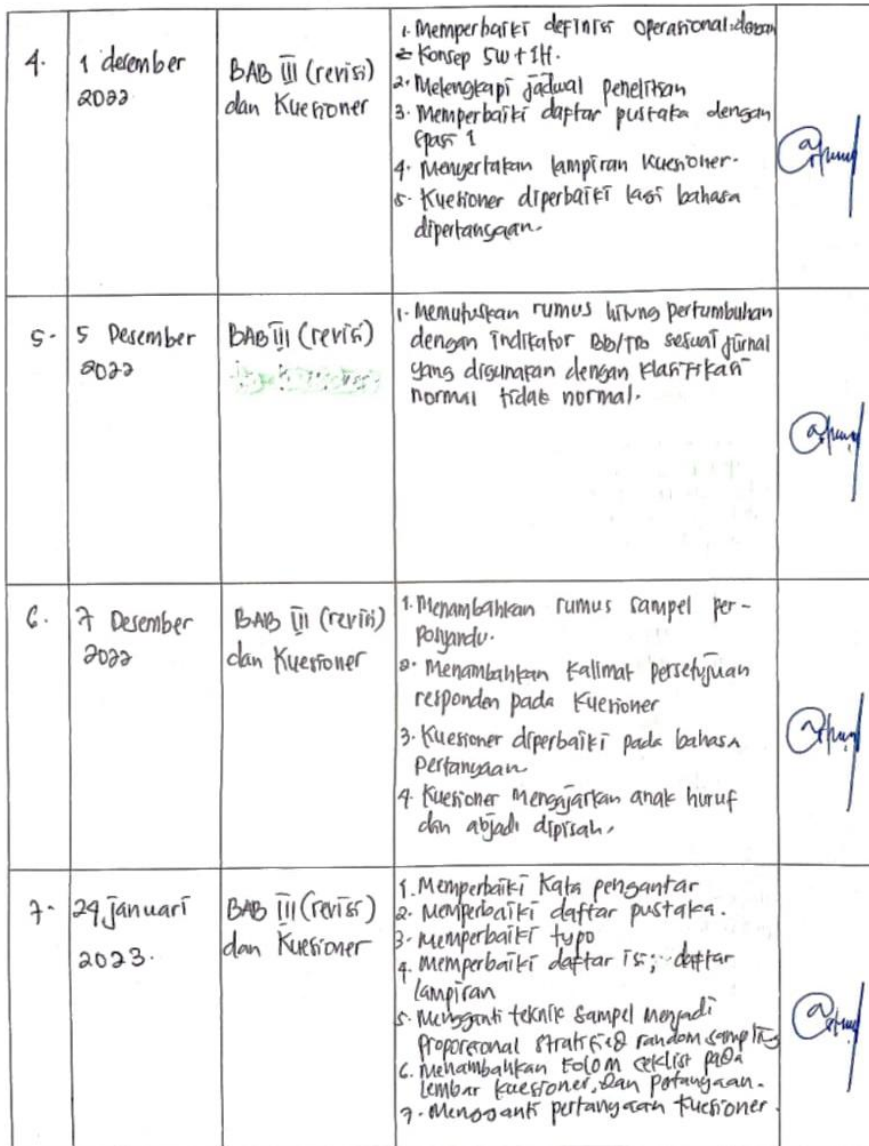 4.
1 desember
2022
BAB III (revisi)
dan Kuesioner
1. Memperbaiki definisi operasional dengan
Konsep 5W+1H.
2. Melengkapi jadwal penelitian
3. Memperbaiki daftar pustaka dengan
spasi 1
4. Menyertakan lampiran kuesioner.
5. Kuesioner diperbaiki lagi bahasa
dipertanyaan.
5.
5 Desember
2022
BAB III (revisi)
1. Memutuskan rumus hitung pertumbuhan
dengan indikator BB/TB sesuai jurnal
yang digunakan dengan klasifikasi
normal tidak normal.
6.
7 Desember
2022
BAB III (revisi)
dan Kuesioner
1. Menambahkan rumus sampel per-
Posyandu.
2. Menambahkan kalimat persetujuan
responden pada kuesioner
3. Kuesioner diperbaiki pada bahasa
Pertanyaan
4. Kuesioner mengajarkan anak huruf
dan abjadi dipisah.
7.
24 januari
2023.
BAB III (revisi)
dan Kuesioner
1. Memperbaiki Kata pengantar
2. Memperbaiki daftar pustaka.
3. Memperbaiki typo
4. Memperbaiki daftar isi; daftar
lampiran
5. Mengganti teknik sampel menjadi
Proporsional stratified random sampling
6. Menambahkan kolom ceklist pada
lembar kuesioner, dan pertanyaan.
7. Mengganti pertanyaan kuesioner.